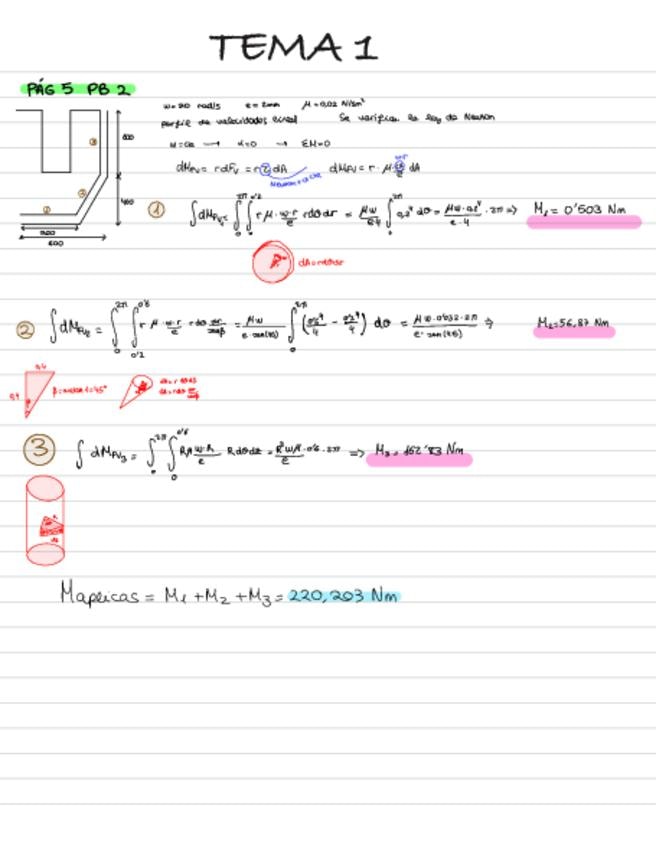 TEMA 1
PÁG 5 PB 2
e = 2mm μ = 0,02 N/sm²
perfil de velocidades lineal Se verifica la ley de Newton
ω = cte → α = 0 → ΣM = 0
dM_FV = r dF_V = r τ dA dM_FV = r · μ · ω·r/e dA
①
600
②
③
400
600
① ∫dM_FV₁ = ∫₀^2π ∫₀^0'2 r μ · ω·r/e r dθ dr = μω/e4 ∫₀^2π 0,2⁴ dθ = μω·0,2⁴/e·4 · 2π ⇒ M₁ = 0'503 Nm
② ∫dM_FV₂ = ∫₀^2π ∫_0'2^0'6 r μ · ω·r/e · r dθ dr/senβ = μω/e·sen(45) ∫₀^2π (0'6⁴/4 - 0'2⁴/4) dθ = μω·0'032·2π/e·sen(45) ⇒ M₂ = 56,87 Nm
0,4
0,4
③ ∫dM_FV₃ = ∫₀^2π ∫₀^0'6 Rμ ω·R/e R dθ dz = R³ωμ/e · 0'6 · 2π ⇒ M₃ = 162'83 Nm
Maplicas = M₁ + M₂ + M₃ = 220,203 Nm